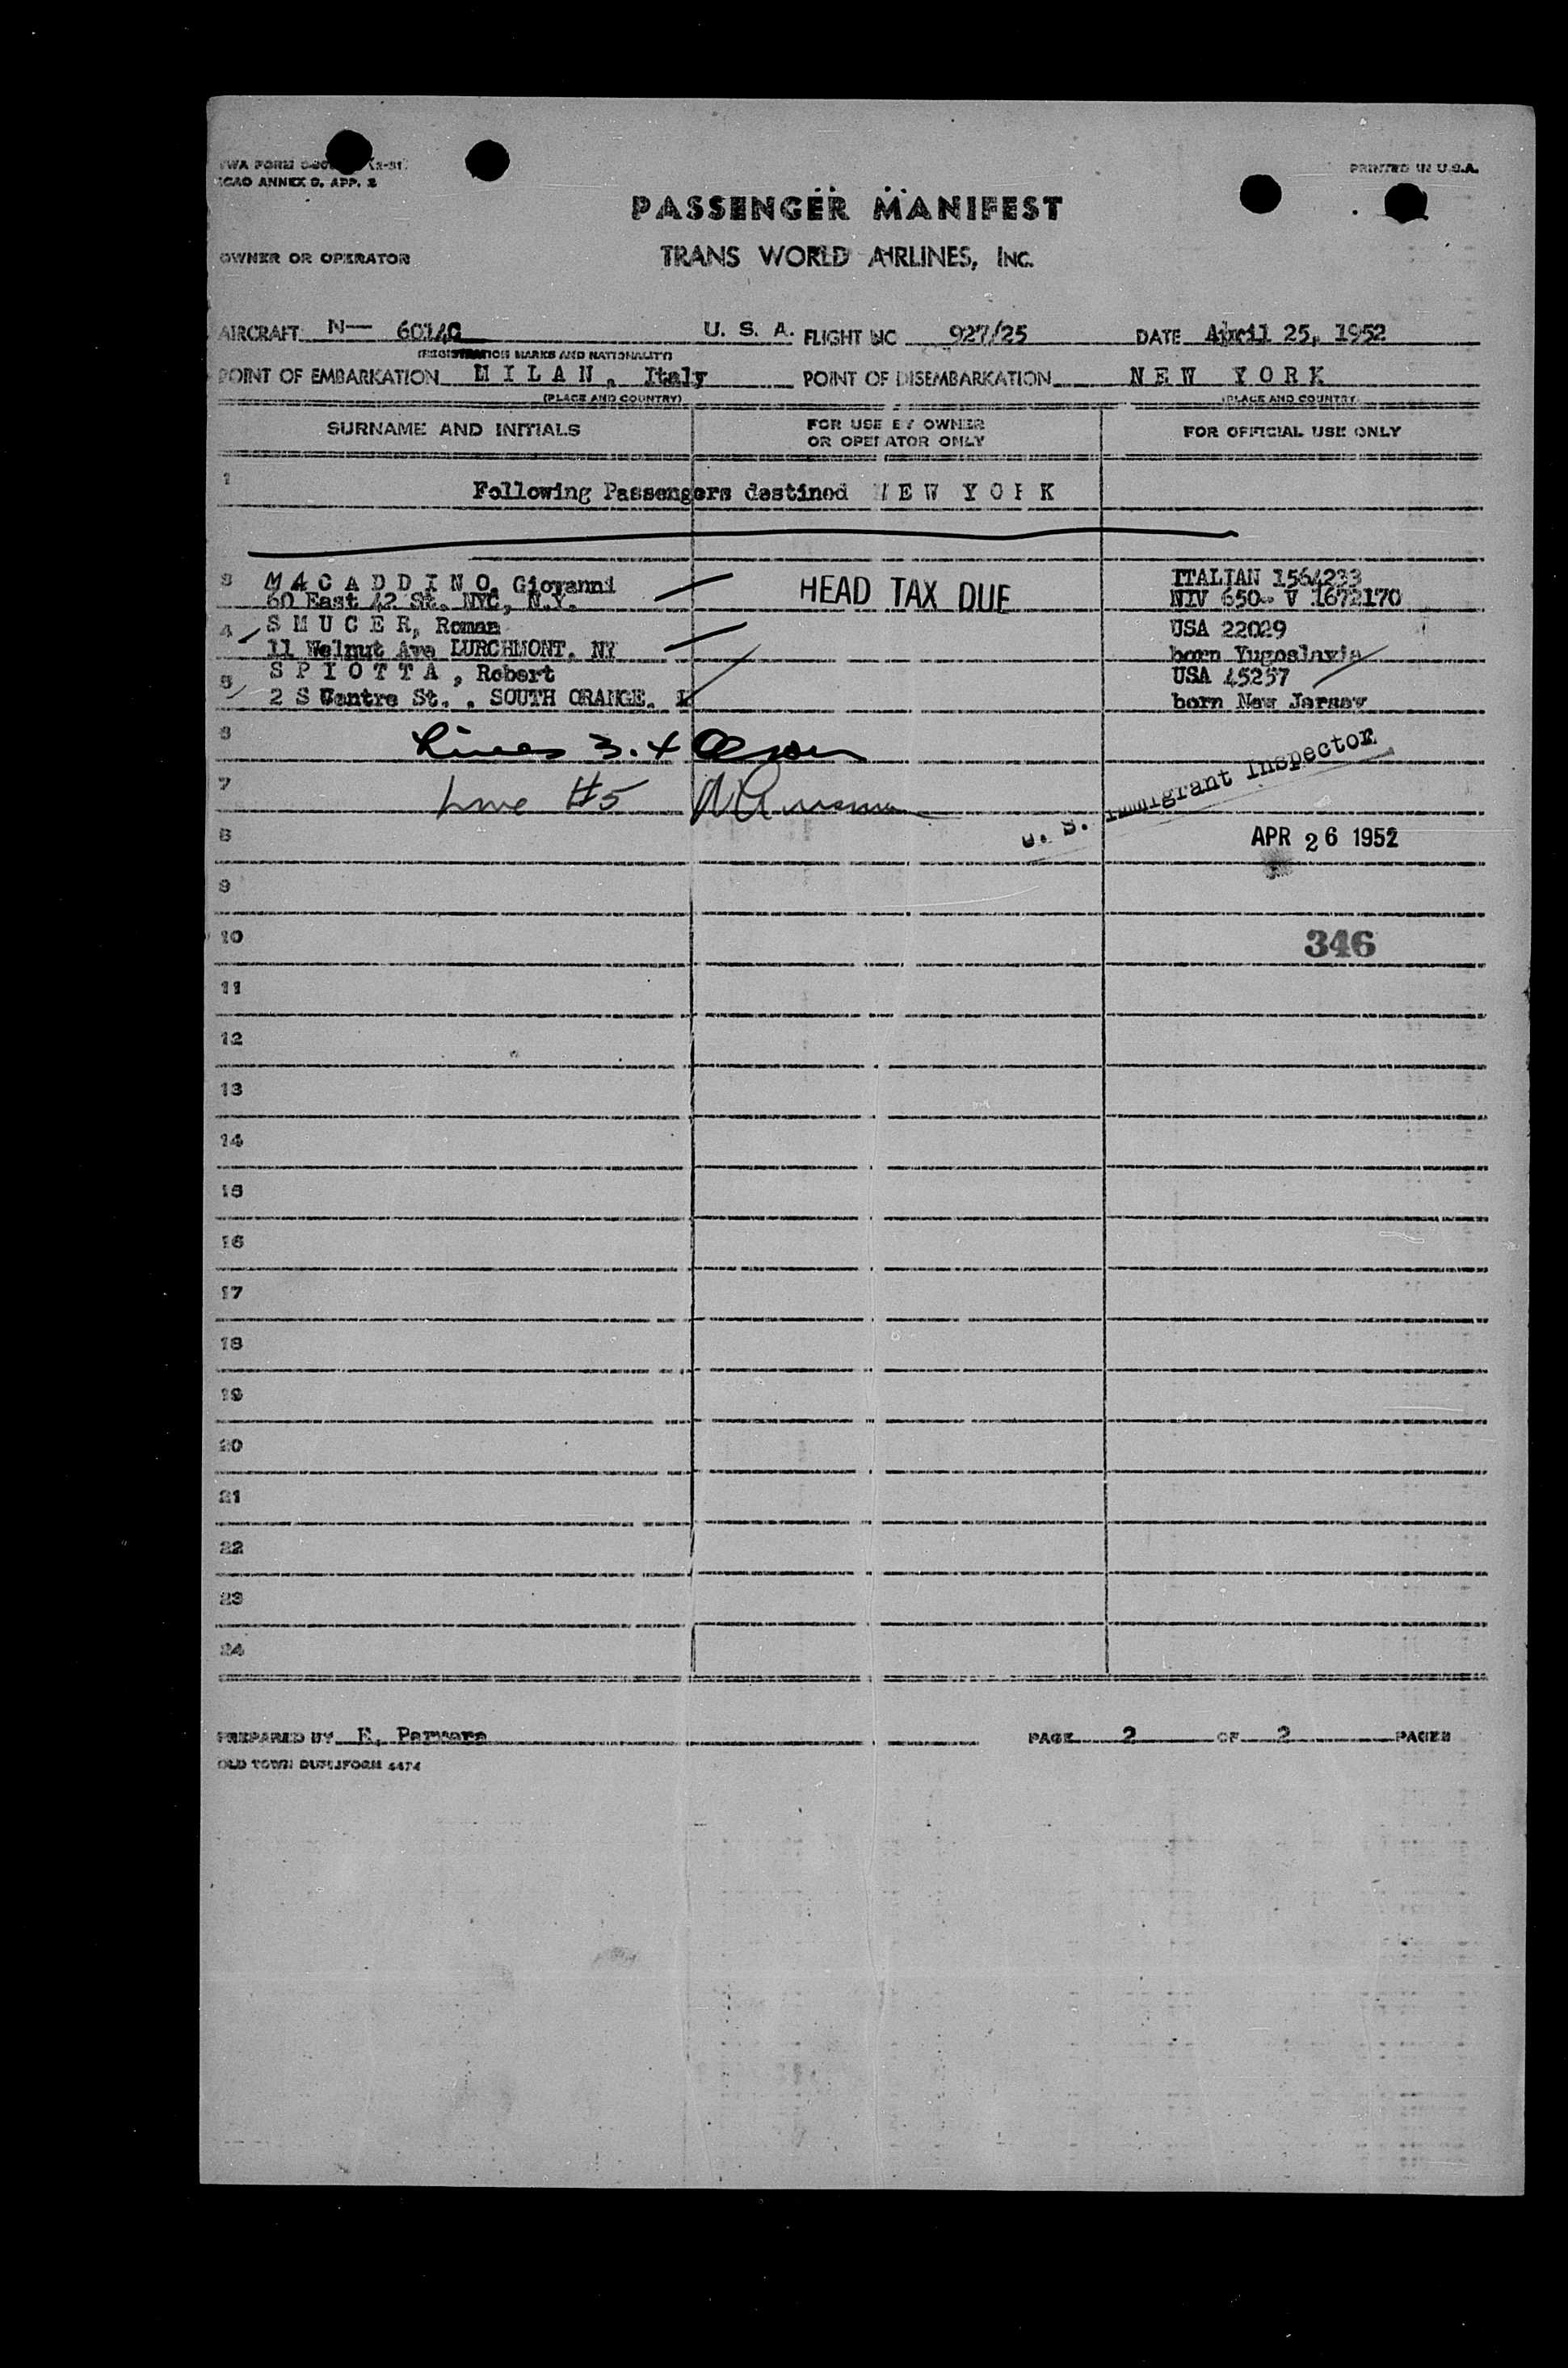 TWA FORM (2-51)
ICAO ANNEX 9, APP. 2
PRINTED IN U.S.A.
PASSENGER MANIFEST
OWNER OR OPERATOR
TRANS WORLD AIRLINES, INC.
AIRCRAFT N— 6014C U. S. A. FLIGHT NO 927/25 DATE April 25, 1952
(REGISTRATION MARKS AND NATIONALITY)
POINT OF EMBARKATION M I L A N , Italy POINT OF DISEMBARKATION N E W Y O R K
(PLACE AND COUNTRY) (PLACE AND COUNTRY)
SURNAME AND INITIALS FOR USE BY OWNER OR OPERATOR ONLY FOR OFFICIAL USE ONLY
1 Following Passengers destined N E W Y O R K
3 M A C A D D I N O, Giovanni HEAD TAX DUE ITALIAN 1564233
60 East 42 St. NYC, N.Y. NIV 650- V 1672170
4 S M U C E R, Roman USA 22029
11 Walnut Ave LURCHMONT. NY born Yugoslavia
5 S P I O T T A , Robert USA 45257
2 S Centre St. , SOUTH ORANGE. born New Jersey
6 Lines 3.4
7 Line #5
U. S. Immigrant Inspector
8 APR 26 1952
9
10 346
11
12
13
14
15
16
17
18
19
20
21
22
23
24
PREPARED BY E. PAGE 2 OF 2 PAGES
OLD TOWN DUPLIFORM 4474